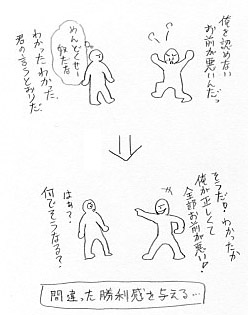 俺を認めない
お前が悪いんだっ
めんどくせー
敵だな
わかったわかった、
君の言うとおりだ。
そうだ!わかったか
俺が正しくて
全部お前が悪い!
はぁ?
何でそうなる?
間違った勝利感を与える…